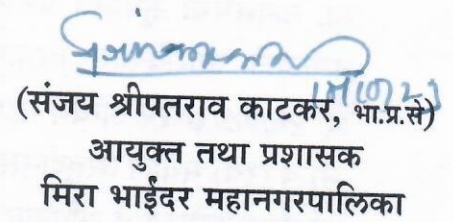 (संजय श्रीपतराव काटकर, भा.प्र.से)
आयुक्त तथा प्रशासक
मिरा भाईंदर महानगरपालिका